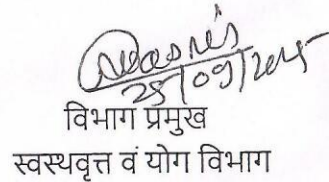 25/09/2025
विभाग प्रमुख
स्वस्थवृत्त वं योग विभाग